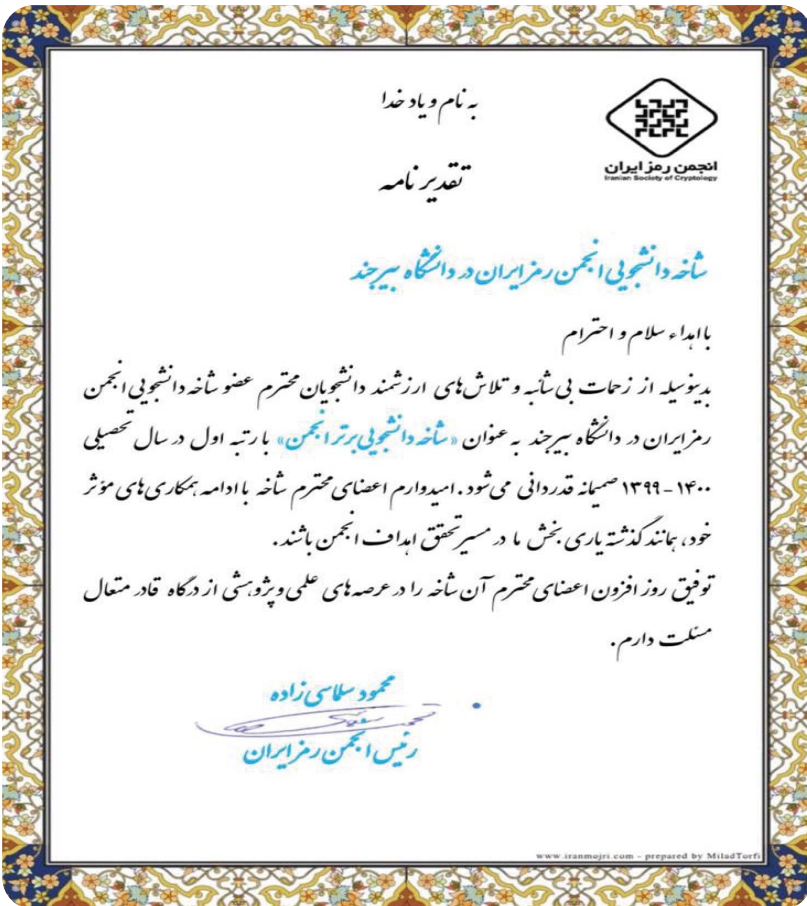 به نام و یاد خدا
انجمن رمز ایران
Iranian Society of Cryptology
تقدیر نامه
شاخه دانشجویی انجمن رمز ایران در دانشگاه بیرجند
با اهداء سلام و احترام
بدینوسیله از زحمات بی شائبه و تلاش های ارزشمند دانشجویان محترم عضو شاخه دانشجویی انجمن
رمز ایران در دانشگاه بیرجند به عنوان «شاخه دانشجویی برتر انجمن» با رتبه اول در سال تحصیلی
۱۳۹۹-۱۴۰۰ صمیمانه قدردانی می شود. امیدوارم اعضای محترم شاخه با ادامه همکاری های مؤثر
خود، همانند گذشته یاری بخش ما در مسیر تحقق اهداف انجمن باشند.
توفیق روز افزون اعضای محترم آن شاخه را در عرصه های علمی و پژوهشی از درگاه قادر متعال
مسئلت دارم.
محمود سلماسی زاده
رئیس انجمن رمز ایران
www.iranmojri.com - prepared by MiladTorfi